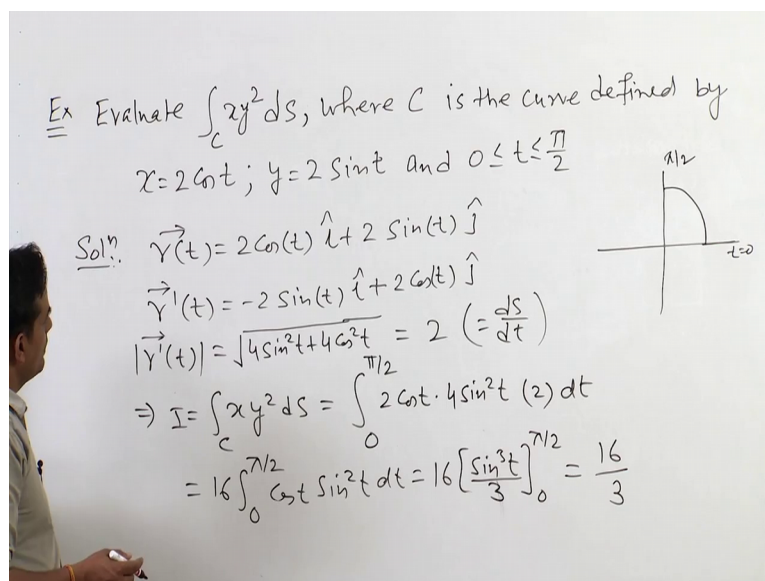 Ex Evaluate ∫_C xy² ds, where C is the curve defined by
x = 2 Cos t ; y = 2 Sin t and 0 ≤ t ≤ π/2
π/2
t=0
Solⁿ. r⃗(t) = 2 Cos(t) î + 2 Sin(t) ĵ
r⃗'(t) = -2 Sin(t) î + 2 Cos(t) ĵ
|r⃗'(t)| = √(4 Sin²t + 4 Cos²t) = 2 (= ds/dt)
⇒ I = ∫_C xy² ds = ∫₀^{π/2} 2 Cos t · 4 Sin²t (2) dt
= 16 ∫₀^{π/2} Cos t Sin²t dt = 16 [Sin³t/3]₀^{π/2} = 16/3